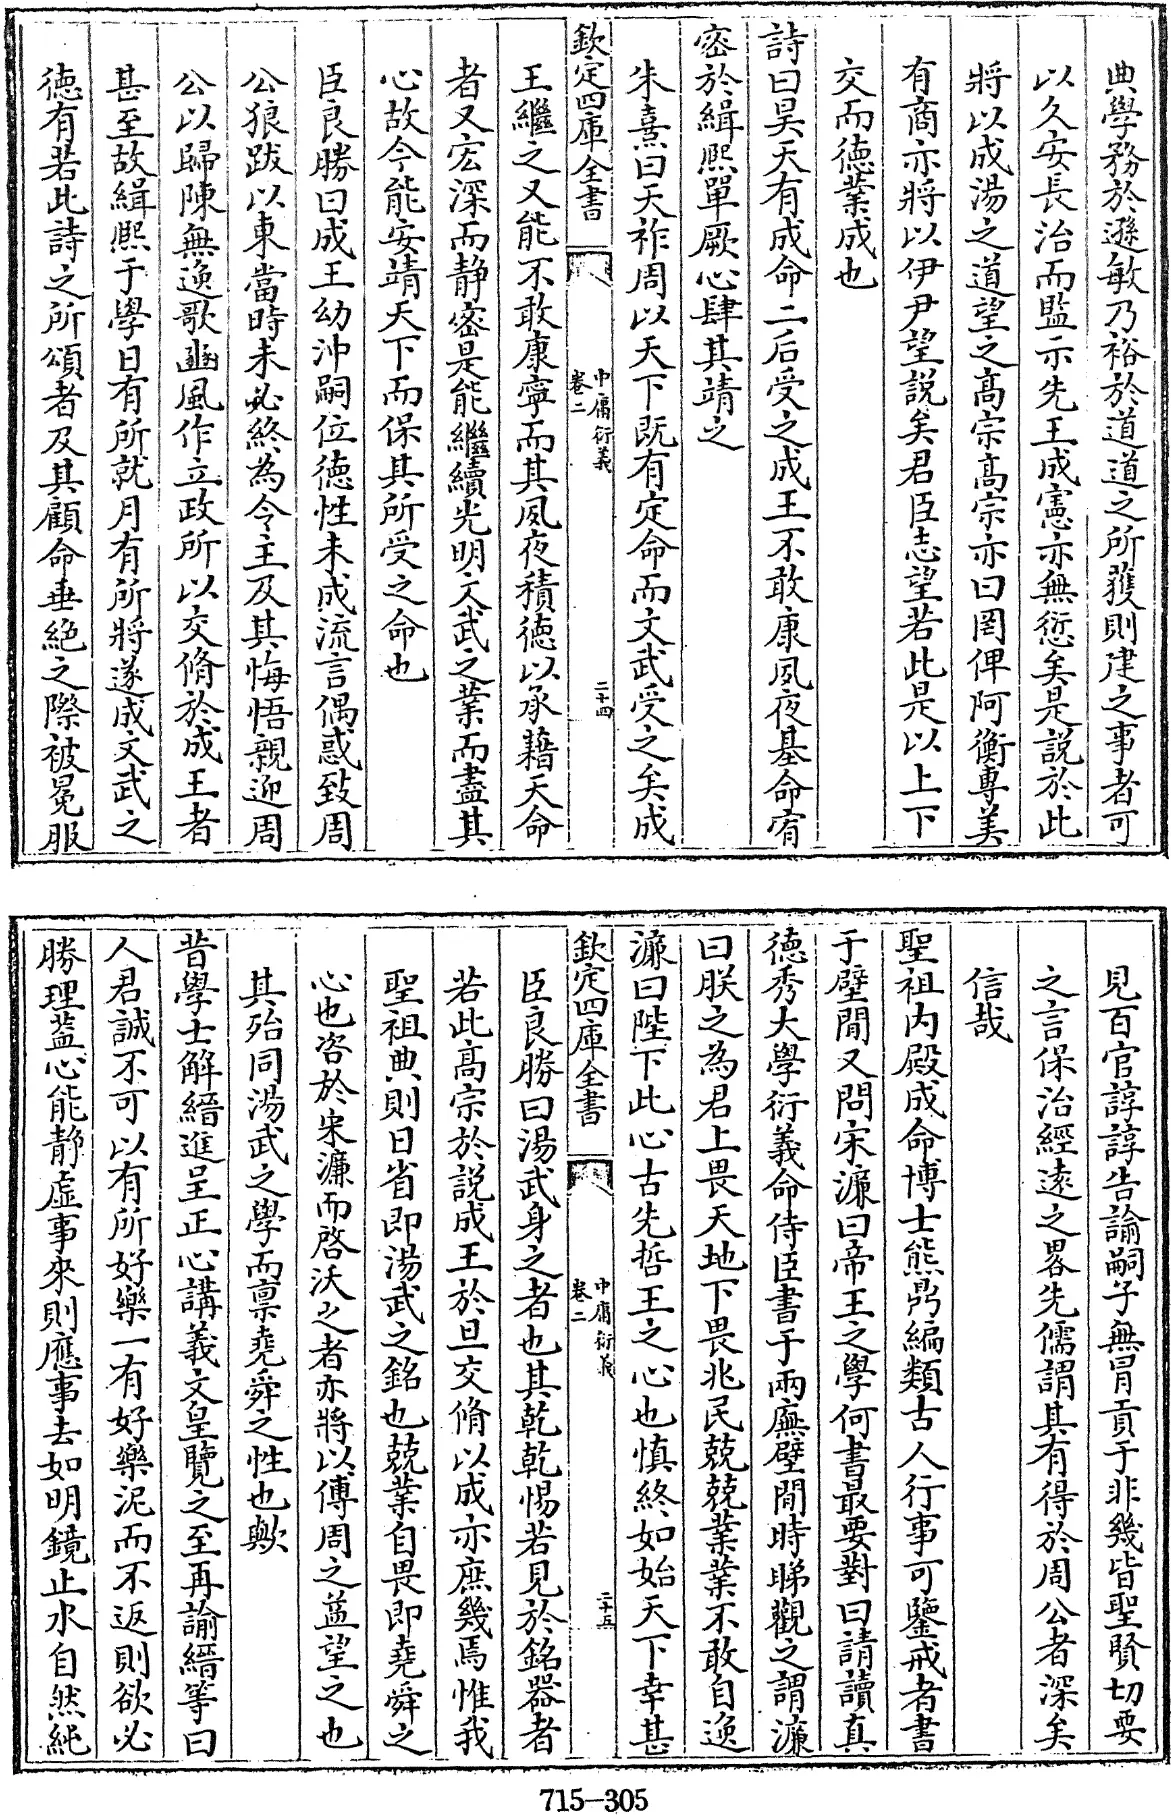 典學務於遜敏乃裕於道道之所獲則建之事者可
以久安長治而監示先王成憲亦無愆矣是説於此
將以成湯之道望之髙宗髙宗亦曰罔俾阿衡專美
有商亦將以伊尹望説矣君臣志望若此是以上下
交而徳業成也
詩曰昊天有成命二后受之成王不敢康夙夜基命宥
宻於緝熙單厥心肆其靖之
朱熹曰天祚周以天下既有定命而文武受之矣成
欽定四庫全書
中庸衍義
卷二
二十四
王繼之又能不敢康寧而其夙夜積徳以承藉天命
者又宏深而静宻是能繼續光明文武之業而盡其
心故今能安靖天下而保其所受之命也
臣良勝曰成王幼沖嗣位徳性未成流言偶惑致周
公狼跋以東當時未必終為令主及其悔悟親迎周
公以歸陳無逸歌豳風作立政所以交脩於成王者
甚至故緝熙于學日有所就月有所將遂成文武之
徳有若此詩之所頌者及其顧命垂絶之際被冕服
見百官諄諄告諭嗣子無冒貢于非幾皆聖賢切要
之言保治經逺之畧先儒謂其有得於周公者深矣
信哉
聖祖内殿成命博士熊鼎編類古人行事可鑒戒者書
于壁間又問宋濂曰帝王之學何書最要對曰請讀真
徳秀大學衍義命侍臣書于兩廡壁間時睇觀之謂濂
曰朕之為君上畏天地下畏兆民兢兢業業不敢自逸
濂曰陛下此心古先哲王之心也慎終如始天下幸甚
欽定四庫全書
中庸衍義
卷二
二十五
臣良勝曰湯武身之者也其乾乾惕若見於銘器者
若此髙宗於説成王於旦交脩以成亦庶幾焉惟我
聖祖典則日省即湯武之銘也兢業自畏即堯舜之
心也咨於宋濂而啓沃之者亦將以傅周之益望之也
其殆同湯武之學而禀堯舜之性也歟
昔學士解縉進呈正心講義文皇覽之至再諭縉等曰
人君誠不可以有所好樂一有好樂泥而不返則欲必
勝理葢心能静虚事來則應事去如明鏡止水自然純
715-305